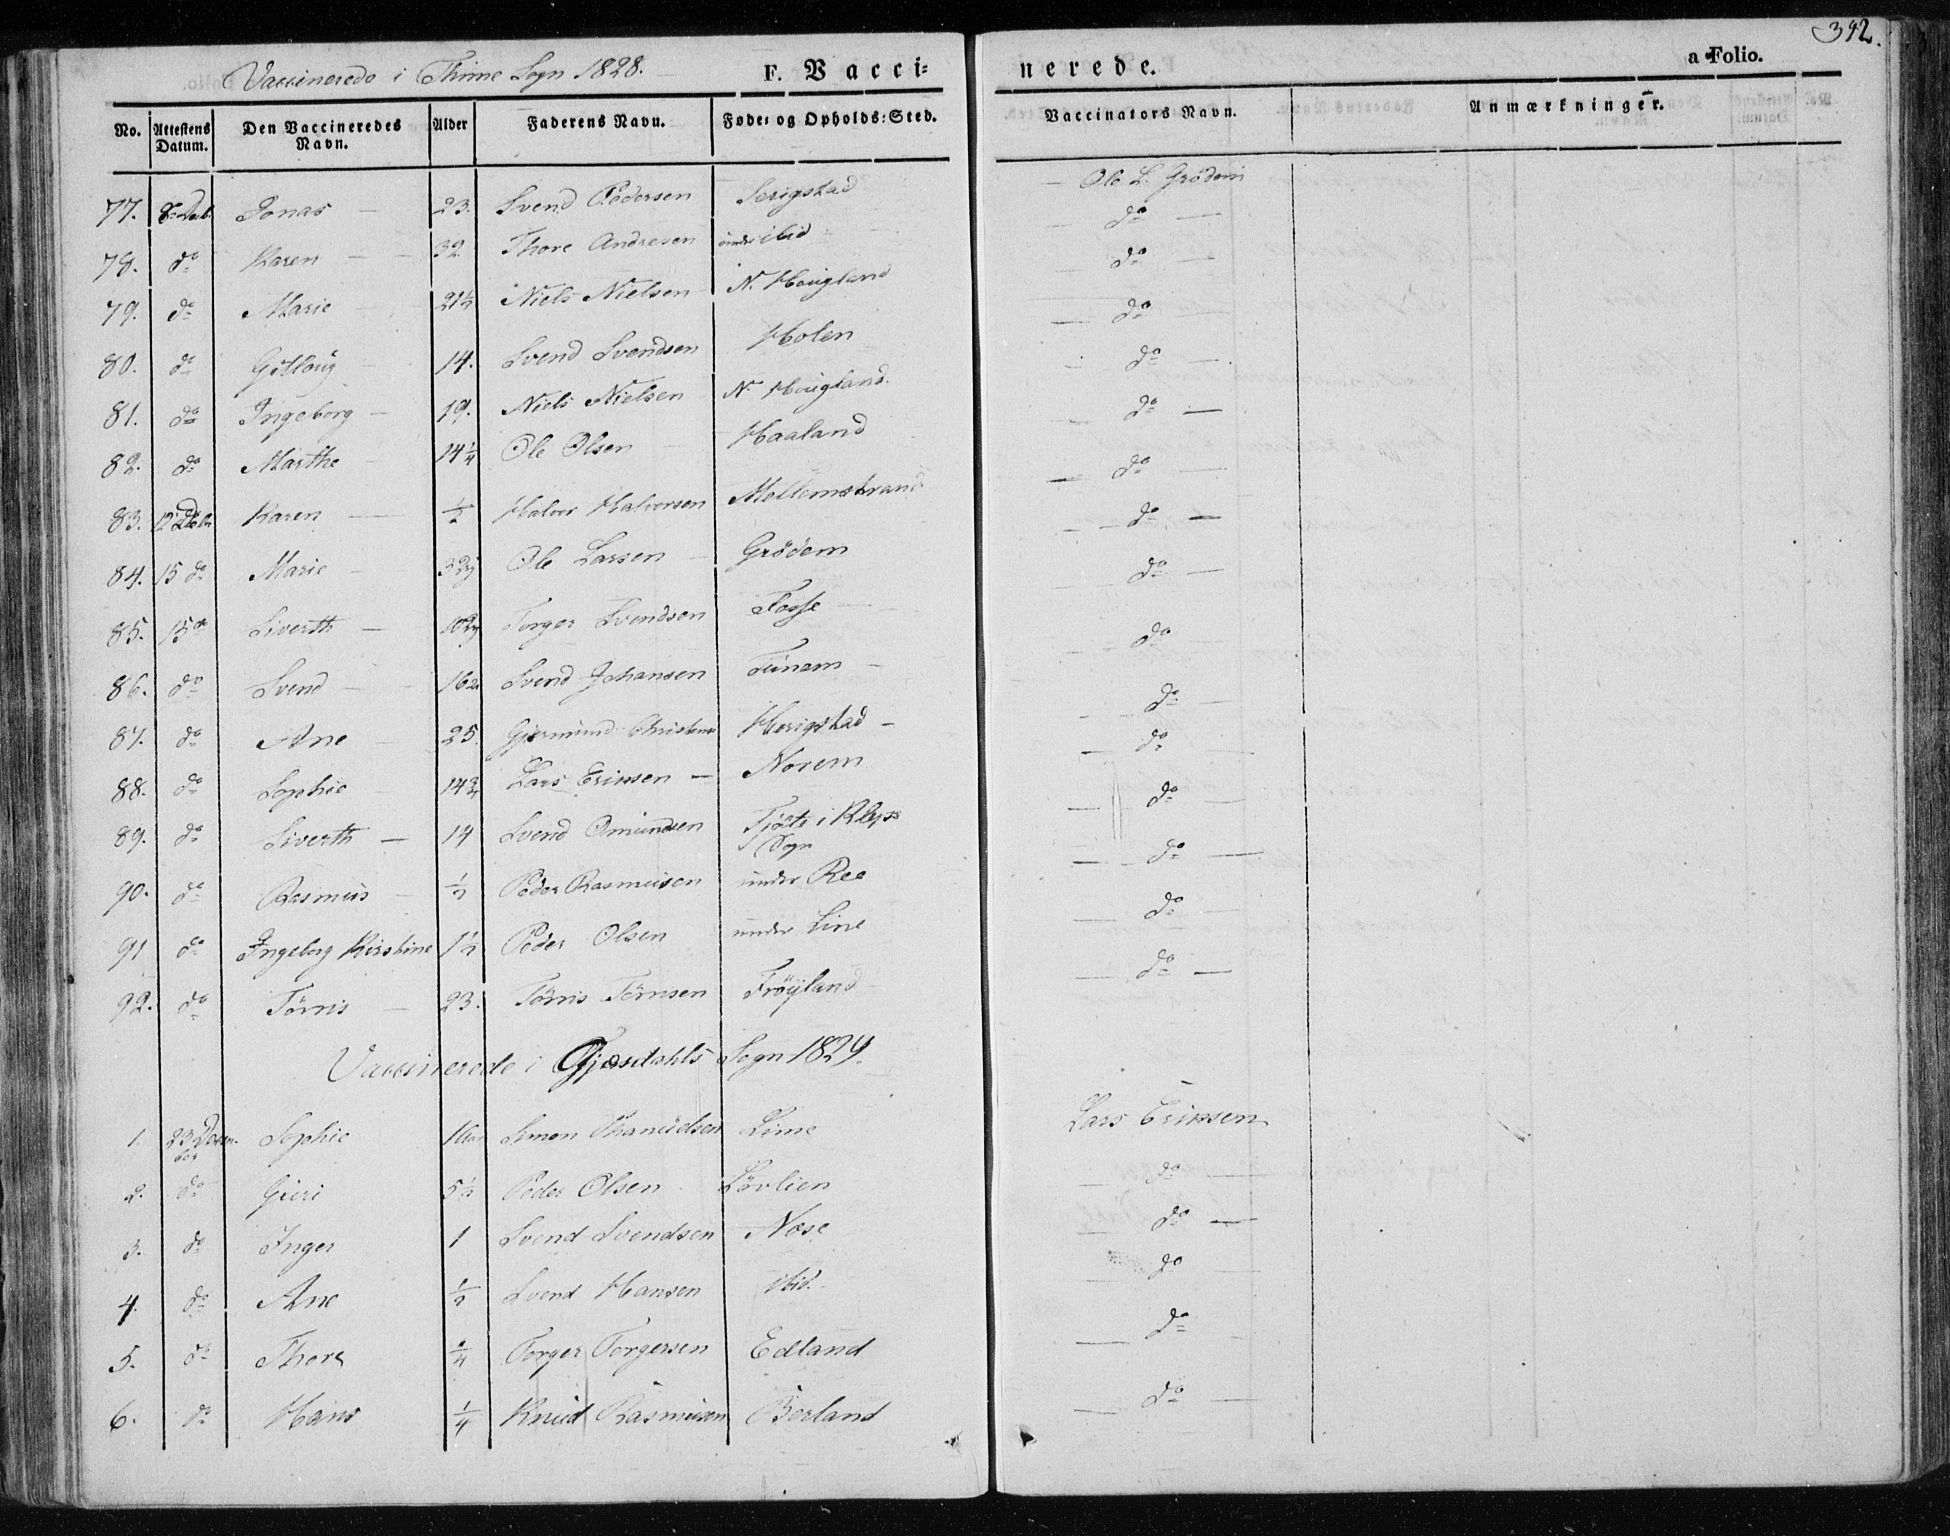 392.
Vaccinerede i Thime Sogn 1828.
F. Vacci=
nerede.
a Folio.
No. | Attestens Datum. | Den Vaccineredes Navn. | Alder | Faderens Navn. | Føde= og Opholds=Sted. | Vaccinators Navn. | Anmærkninger.
77. | 8de Decb. | Jonas — | 23. | Svend Pedersen | Serigstad | — Ole L. Grödem
78. | do | Karen — | 32 | Thore Andresen | under ibid | do —
79. | do | Marie | 21 1/2 | Niels Nielsen | N. Hougland | do —
80. | do | | 14. | Svend Svendsen | Holen | — do —
81. | do | Ingeborg — | 19. | Niels Nielsen | N. Hougland. | do —
82. | do | Marthe | 14 1/4 | Ole Olsen | Haaland | do —
83. | 12 Decbr | Karen — | 1/2 | Halvor Halvorsen | Mellemstrand | — do —
84. | 15 do | Marie — | | Ole Larsen — | Grödem | — do —
85. | 15 do | Siverth — | | Torger Svendsen | Fosse — | do —
86. | do | Svend — | | Svend Johansen | Tunem — | do
87. | do | Ane — | 25. | Gjermund Christens | Herigstad — | do —
88. | do | Sophie | 14 3/4 | Lars Erinsen — | Norem | — do
89. | do | Siverth — | 14 | Svend Omundsen | Tjöte i Klep Sogn | — do —
90. | do | Rasmus — | 1/2 | Peder Rasmusen | under Ree | — do —
91 | do | Ingeborg Kirstine | 1 1/2 | Peder Olsen | under Line | do —
92. | do | Törris — | 23. | Törris Törrisen | Fröyland | — do —
Vaccinerede i Gjesdahls Sogn 1829.
1. | 23 Decem ber | Sophie | | Simon Thanielsen | Lime | Lars Erinsen
2. | do | Guri | 5 1/2 | Peder Olsen | Lövlien | — do —
3. | do | Inger | 1 | Svend Svendsen | Nose | do —
4. | do | Ane | 1/2 | Svend Hansen | ibid. | do
5. | do | Thore | | Torger Torgersen | Edland | — do —
6. | do | Hans | 1/4 | Knud Rasmusen | Berland | — do —